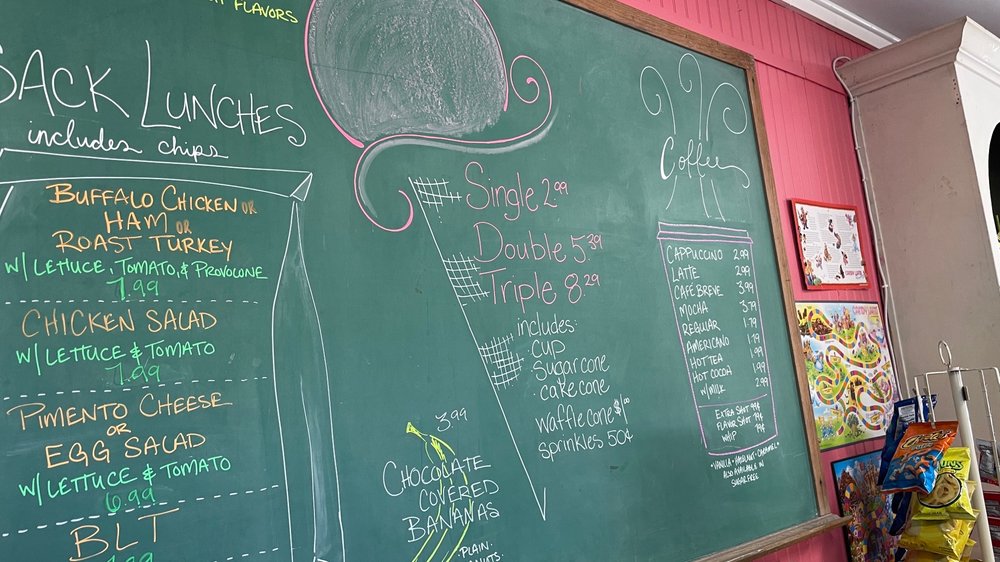 FLAVORS
SACK LUNCHES
includes chips
BUFFALO CHICKEN OR
HAM OR
ROAST TURKEY
W/ LETTUCE, TOMATO, & PROVOLONE
7.99
CHICKEN SALAD
W/ LETTUCE & TOMATO
7.99
PIMENTO CHEESE
OR
EGG SALAD
W/ LETTUCE & TOMATO
6.99
BLT
Single 2.99
Double 5.39
Triple 8.29
includes:
CUP
Sugar cone
cake cone
waffle cone $1.00
sprinkles 50¢
3.99
CHOCOLATE
COVERED
BANANAS
.PLAIN.
Coffee
CAPPUCCINO 2.99
LATTE 2.99
CAFÉ BREVE 3.99
MOCHA 3.79
REGULAR 1.79
AMERICANO 1.79
HOT TEA 1.99
HOT COCOA 1.99
W/MILK 2.99
EXTRA SHOT 99¢
FLAVOR SHOT 79¢
79¢
*VANILLA • HAZELNUT • CARAMEL*
ALSO AVAILABLE IN
SUGAR FREE